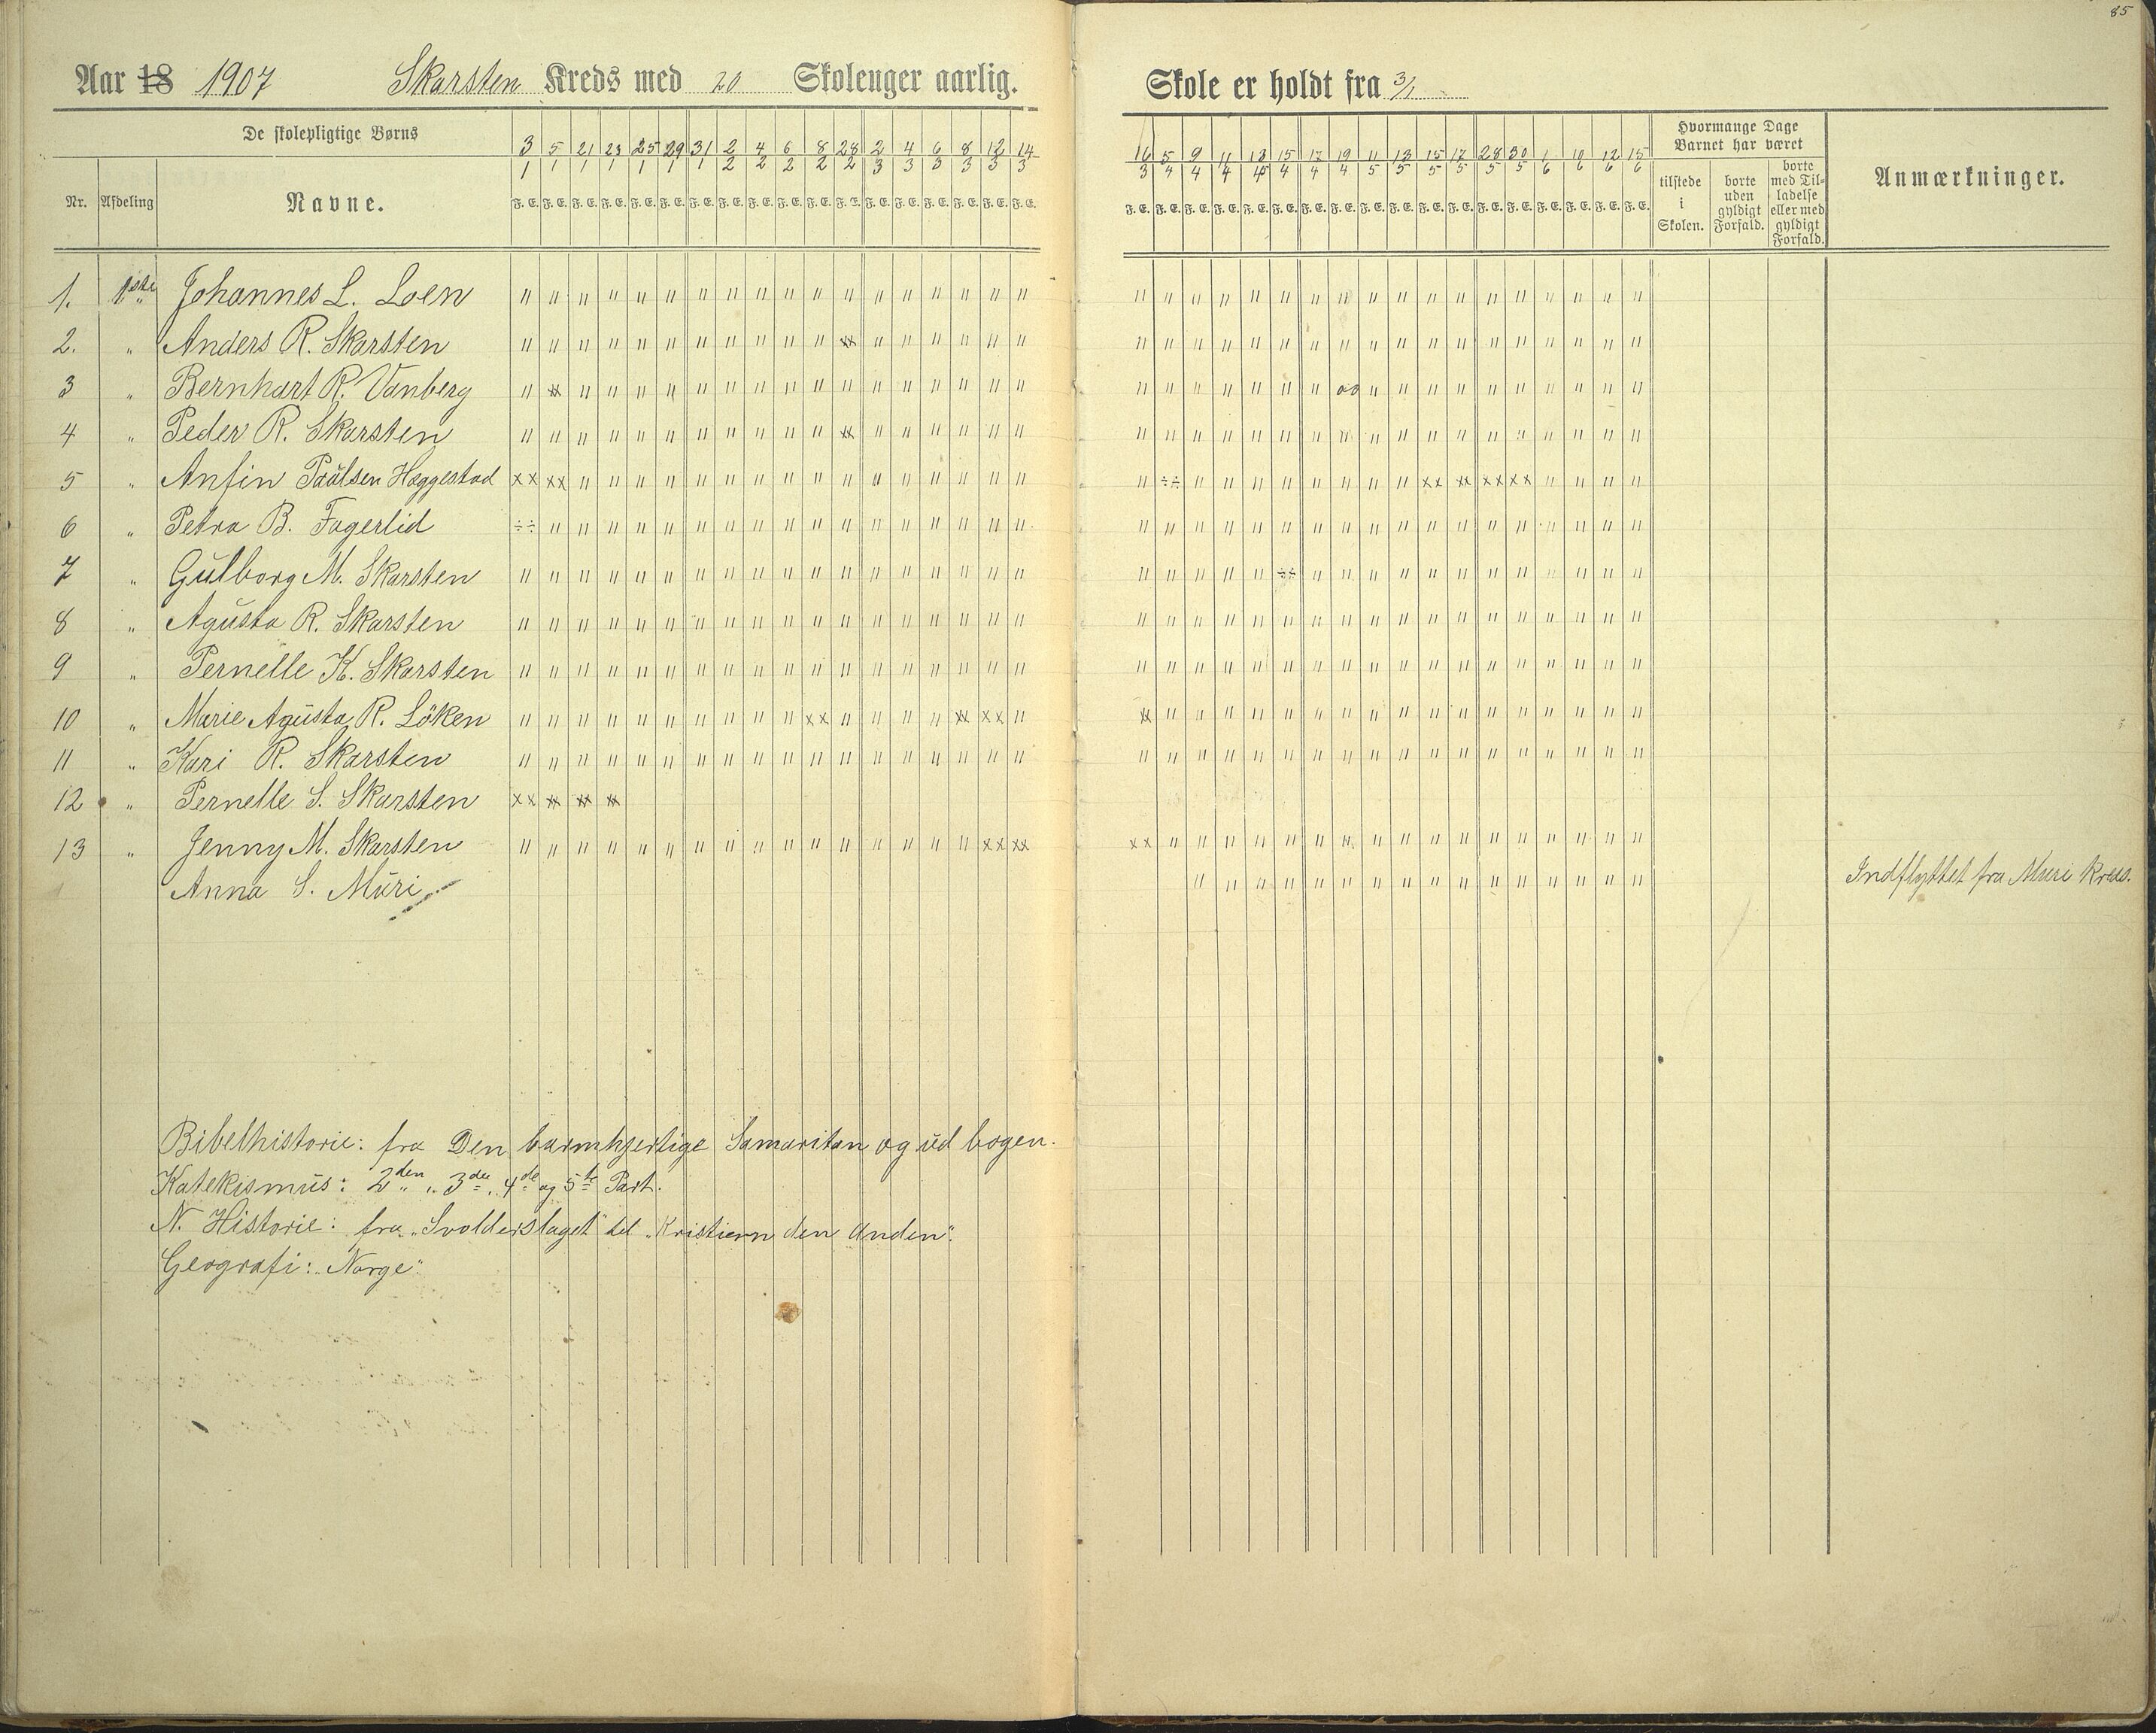 85
Aar 18 1907 Skarsten Kreds med 20 Skoleuger aarlig. Skole er holdt fra 3/1
De skolepligtige Børns
Nr. Afdeling Navne.
3 5 21 23 25 29 31 2 4 6 8 28 2 4 6 8 12 14
1 1 1 1 1 1 1 2 2 2 2 2 3 3 3 3 3 3
F. E. F. E. F. E. F. E. F. E. F. E. F. E. F. E. F. E. F. E. F. E. F. E. F. E. F. E. F. E. F. E. F. E. F. E.
16 5 9 11 13 15 17 19 11 13 15 17 28 30 1 10 12 15
3 4 4 4 4 4 4 4 5 5 5 5 5 5 6 6 6 6
F. E. F. E. F. E. F. E. F. E. F. E. F. E. F. E. F. E. F. E. F. E. F. E. F. E. F. E. F. E. F. E. F. E. F. E.
Hvormange Dage
Barnet har været
tilstede
i
Skolen.
borte
uden
gyldigt
Forfald.
borte
med Til-
ladelse
eller med
gyldigt
Forfald.
Anmærkninger.
1. 1ste Johannes L. Loen
2. " Anders R. Skarsten
3 " Bernhart R. Vanberg
4 " Peder R. Skarsten
5 " Anfin Paulsen Heggestad
6 " Petra B. Fagerlid
7 " Gulborg M. Skarsten
8 " Agusta R. Skarsten
9 " Pernelle K. Skarsten
10 " Marie Agusta R. Löken
11 " Kari R. Skarsten
12 " Pernelle S. Skarsten
13 " Jenny M. Skarsten
Anna S. Muri Indflyttet fra Muri Kreds.
Bibelhistorie: fra Den barmhjertige Samaritan og ud bogen.
Katekismus: 2den, 3die, 4de og 5te Part.
N. Historie: fra "Svolderslaget" til "Kristiern den Anden".
Geografi: "Norge"